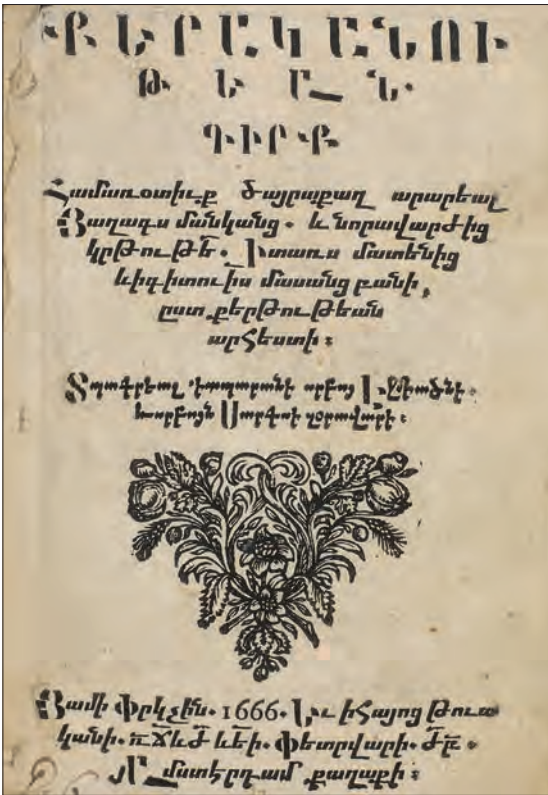 ՔԵՐԱԿԱՆՈՒ
ԹԵԱՆ
ԳԻՐՔ
Համառօտիւք ծայրաքաղ արարեալ
Յաղագս մանկանց. և նորավարժից
կրթութե՟. Ի տառս մատենից
և ի գիտուի՟ս մասանց բանի,
ըստ քերթութեան
արհեստի։
Տպագրեալ ՚ի տպարանի սրբոյ Էջմիածնի.
և սրբոյն Սարգսի զօրավարի։
Յամի Փրկչին. 1666. Եւ ի Հայոց Թուա
կանի. ՌՃ և Ժ և Ե ի. Փետրվարի.
Ամստերդամ քաղաքի։